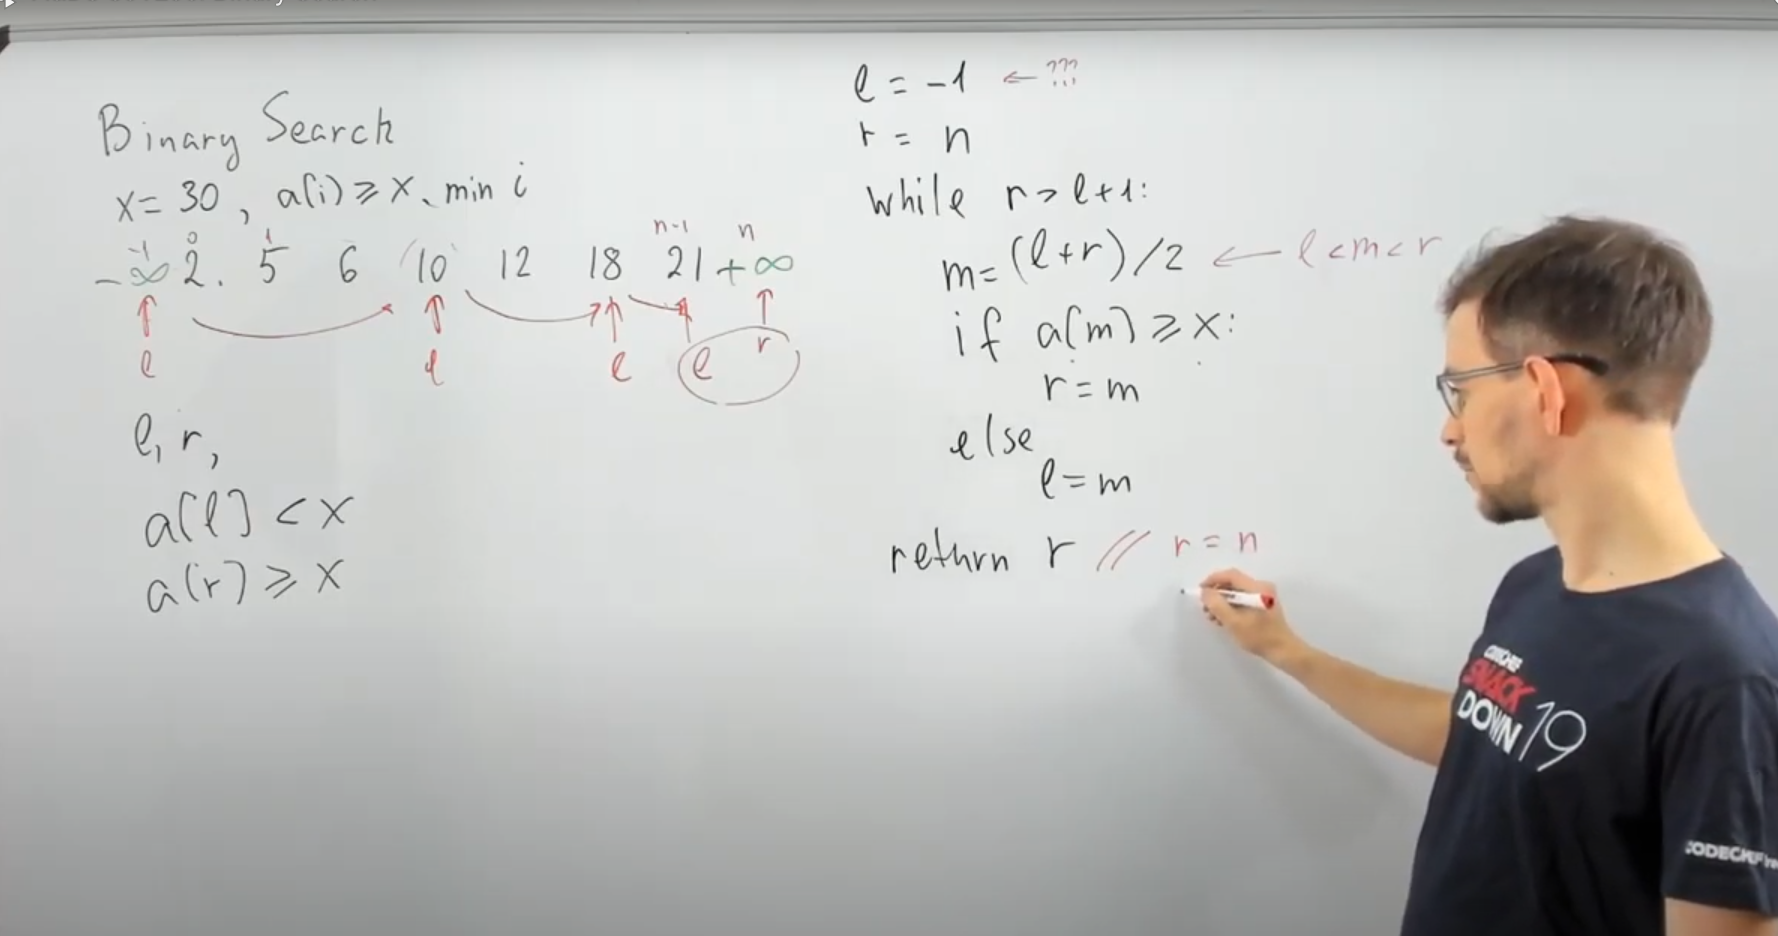 Binary Search
x = 30, a[i] ≥ x, min i
-1 0 1 n-1 n
-∞ 2. 5 6 10 12 18 21 +∞
l l l l r
l, r,
a[l] < x
a[r] ≥ x
l = -1 ← ???
r = n
while r > l+1:
m = (l+r)/2 ← l < m < r
if a[m] ≥ x:
r = m
else
l = m
return r // r = n
CODECHEF
SNACK
DOWN 19
CODECHEF